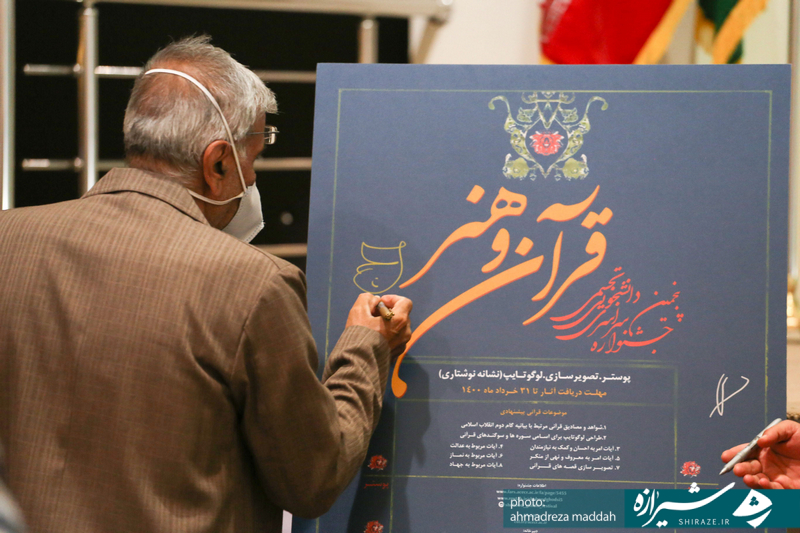 قرآن و هنر
پنجمین
جشنواره سراسری
دانشجویی تجسمی
پوستر.تصویرسازی.لوگوتایپ(نشانه نوشتاری)
مهلت دریافت آثار تا ۳۱ خرداد ماه ۱۴۰۰
موضوعات قرآنی پیشنهادی
۱.شواهد و مصادیق قرآنی مرتبط با بیانیه گام دوم انقلاب اسلامی
۲.طراحی لوگوتایپ برای اسامی سوره ها و سوگندهای قرآنی
۳. آیات امر به احسان و کمک به نیازمندان
۴. آیات مربوط به عدالت
۵. آیات امر به معروف و نهی از منکر
۶. آیات مربوط به نماز
۷. تصویر سازی قصه های قرآنی
۸. آیات مربوط به جهاد
پوستر
اطلاعات جشنواره:
photo:
ahmadreza maddah
شیرازه
SHIRAZE.IR
شیرازه
SHIRAZE.IR